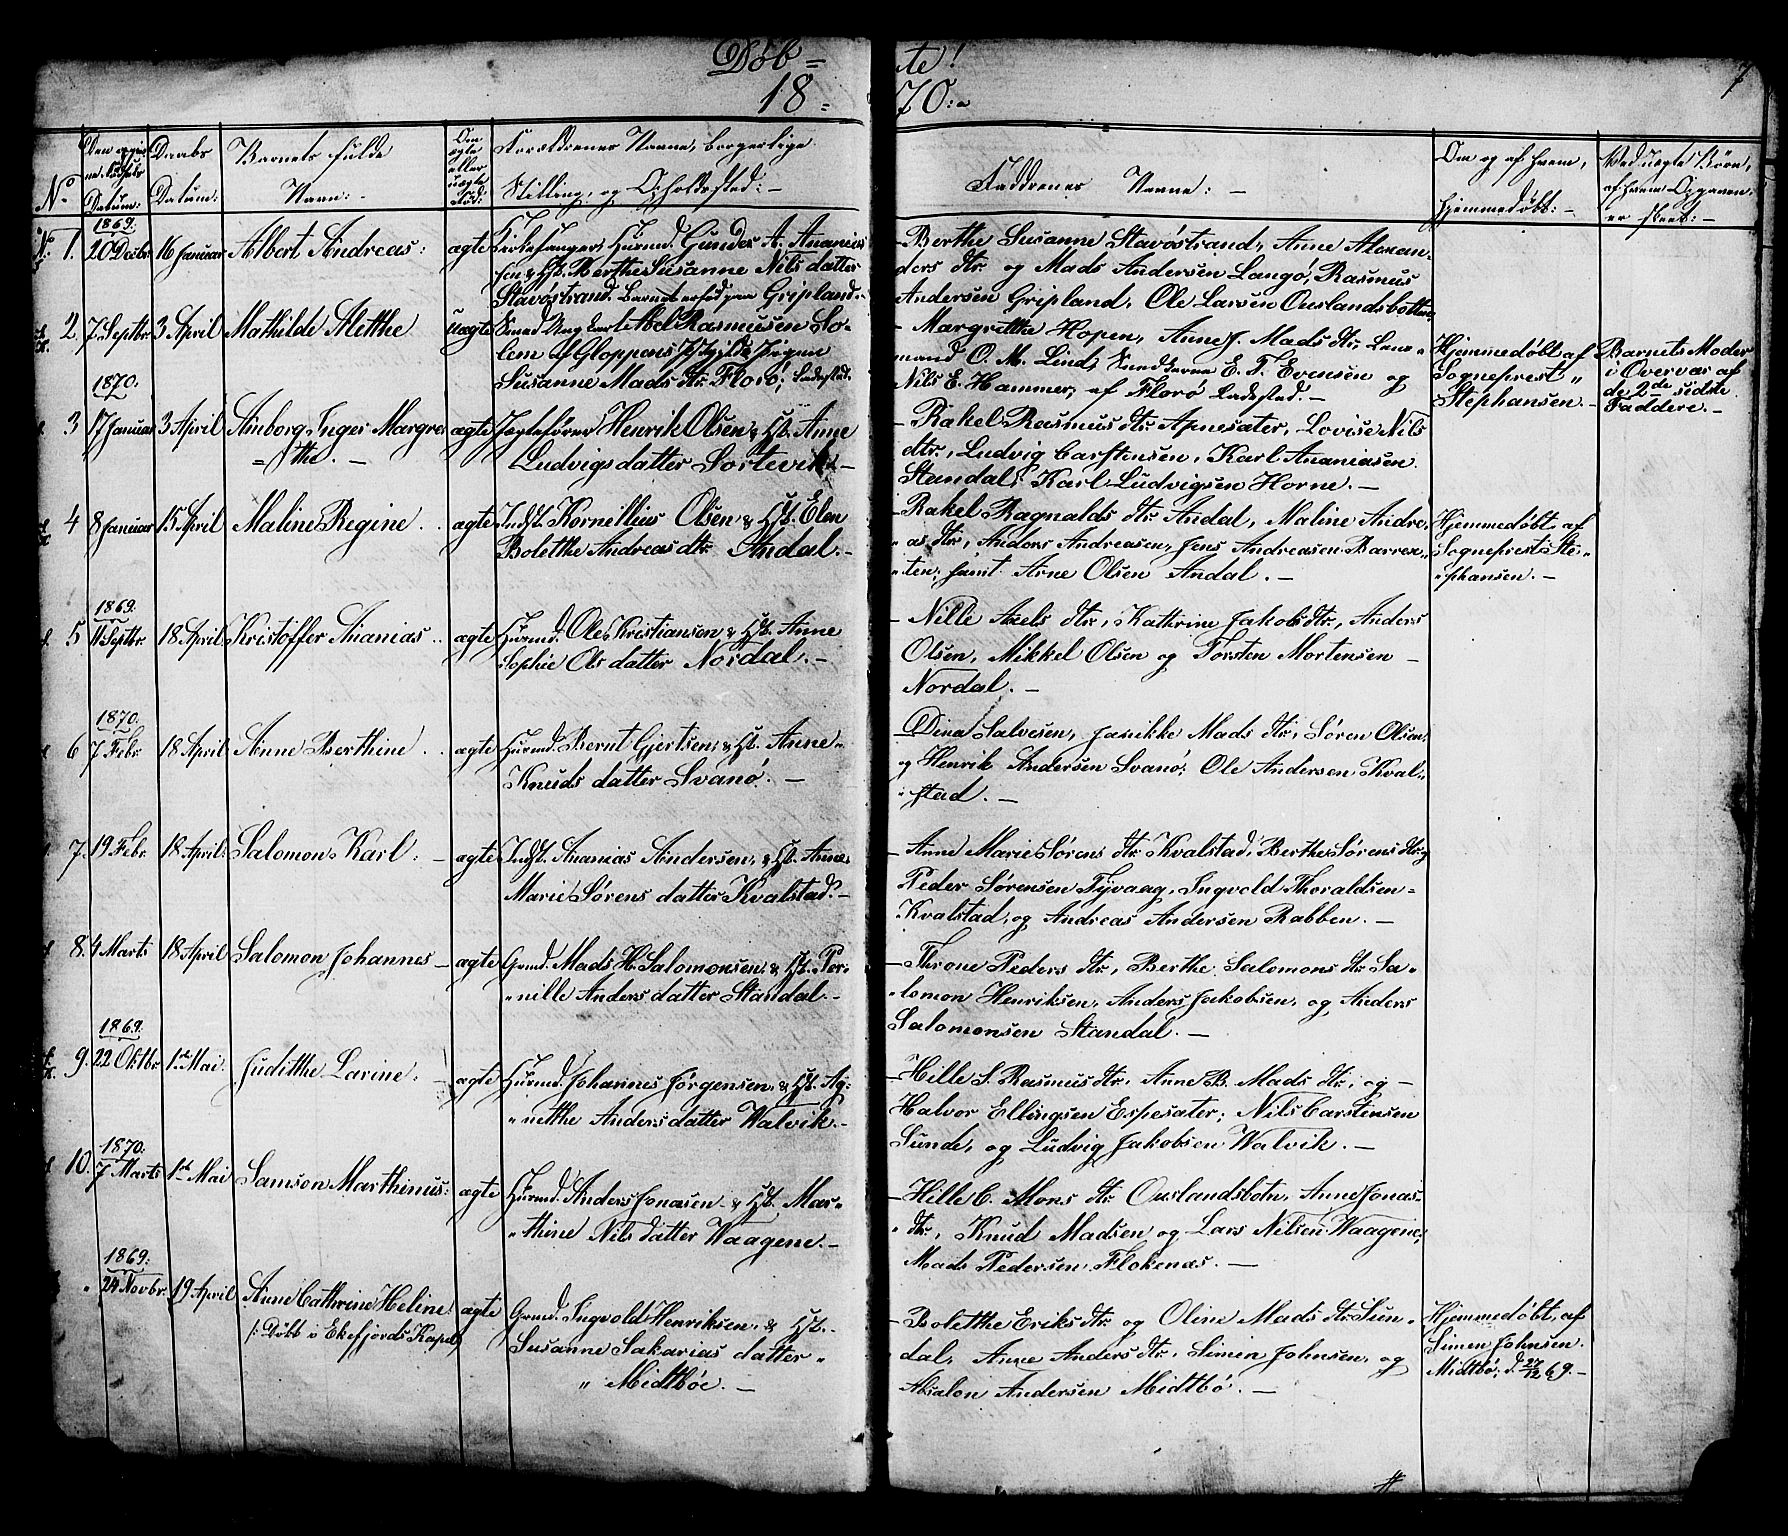 Döb=
te!
7
18=
70:=
No
Datum:
Daabs
Datum:
Barnets fulde
Navn:-
Om
ægte
eller
uægte
Forældrenes Navne, borgerlige
Stilling, og Opholdssted:-
Faddrenes Navne:-
Om og af hvem,
hjemmedøbt:-
Ved uægte Børn,
er skeet:-
1869.
1. 20 Decbr 16 Januar Albert Andreas: ægte Kirkesanger, Huusmd. Gunder A. Ananias
sen & Hst. Berthe Susanne Nils datter
Stavøstrand. Barnet er fød paa Gripland.
Berthe Susanne Stavøstrand, Anne Alexan-
ders dtr. og Mads Andersen Langö, Rasmus
Andersen Gripland, Ole Larsen Ouslandsbotten
2. 7 Septbr 3 April Mathilde Metthe uægte Smed Ung karl Abel Rasmussen So-
lem af Gloppens Pige
Susanne Mads dtr. Florö, Ladested.
- Margrethe Hopen, Anne J. Mads dtr., Lens-
mand O. M. Lind, Smedsvenn E. T. Evensen og
Nils E. Hammer, af Florö Ladested.-
Hjemmedøbt af
Sogneprest
Stephansen.-
Barnets Moder
i Overvær af
de 2de sidste
Faddere.-
1870.
3 17 Januar 3 April Amborg Inger Margre ægte Jægtefører Henrik Olsen & Hst. Anne
=the.-
Ludvigs datter Sortevik-
- Rakel Rasmus dtr. Apnesæter, Lovise Nils
dtr., Ludvig Carstensen, Karl Ananiasen
Standal, Karl Ludvigsen Horne.-
4 8 Januar 15 April Maline Regine.. ægte Indst. Kornellius Olsen & Hst. Elen
Bolethe Andreas dtr. Andal.-
Rakel Ragnalds dtr. Andal, Maline Andre,
as dtr., Anders Andreasen, Jens Andreasen Barre,,
ten, samt Arne Olsen Andal.-
Hjemmedøbt af
Sogneprest Ste-
phansen.-
1869.
5 11 Septbr. 18 April Kristoffer Ananias.. ægte Huusmd. Ole Kristiansen & Hst. Anne
Sophie Ols datter Nordal.-
- Nille Axels dtr., Kathrine Jakobs dtr., Anders
Olsen, Mikkel Olsen og Torsten Mortensen -
Nordal.-
1870.
6 7 Febr. 18 April Anne Berthine.. ægte Huusmd. Bernt Gjertsen, & Hst. Anne-
Knuds datter Svanö.-
- Dina Salvesen, Janikke Mads dtr., Sören Olsen,
og Henrik Andersen Svanö, Ole Andersen Kval-
stad.-
7. 19 Febr. 18 April Salomon Karl:- ægte Indst. Ananias Andersen, & Hst. Anne
Marie Sörens datter Kvalstad.-
- Anne Marie Sörens dtr. Kvalstad, Berthe Sörens dtr. og
Peder Sörensen Tyvaag, Ingvold Thoraldsen-
Kvalstad, og Andreas Andersen Rabben.-
8. 4 Marts 18 April Salomon Johannes- ægte Grmd. Mads H. Salomonsen, & Hst. Per-
nille Anders datter Standal.-
- Throne Peders dtr., Berthe Salomons dtr. Sa-
lomon Henriksen, Anders Jakobsen, og Anders
Salomonsen Standal.-
1869.
9. 22 Oktbr. 1te Mai. Juditthe Larine:- ægte Huusmd. Johannes Jørgensen, & Hst. Ag-
netthe Anders datter Walvik.-
- Hille S. Rasmus dtr., Anne B. Mads dtr., og -
Halvor Ellingsen Espesæter, Nils Carstensen
Sunde, og Ludvig Jakobsen Walvik.-
1870.
10. 7 Marts 1te Mai Samson Marthinus: ægte Huusmd. Anders Jonasen & Hst. Mar-
thine Nils datter Waagene.-
- Hille C. Mons dtr. Ouslandsbotn, Anne Jonas-
dtr., Knud Madsen og Lars Nilsen Waagene,
Mads Pedersen Flokenæs.-
1869.
" 24 Novbr. 19 April Anne Cathrine Heline: ægte Grmd. Ingvold Henriksen, & Hst.
/: Döbt i Ekefjords Kapel
Susanne Sakarias datter
" Midtböe.-
- Bolethe Eriks dtr. og Oline Mads dtr. Sten-
dal, Anne Anders dtr., Simen Johnsen, og
Absalon Andersen Midtbö.-
Hjemmedøbt af
Simen Johnsen
Midtbö, d. 27/12 69.-